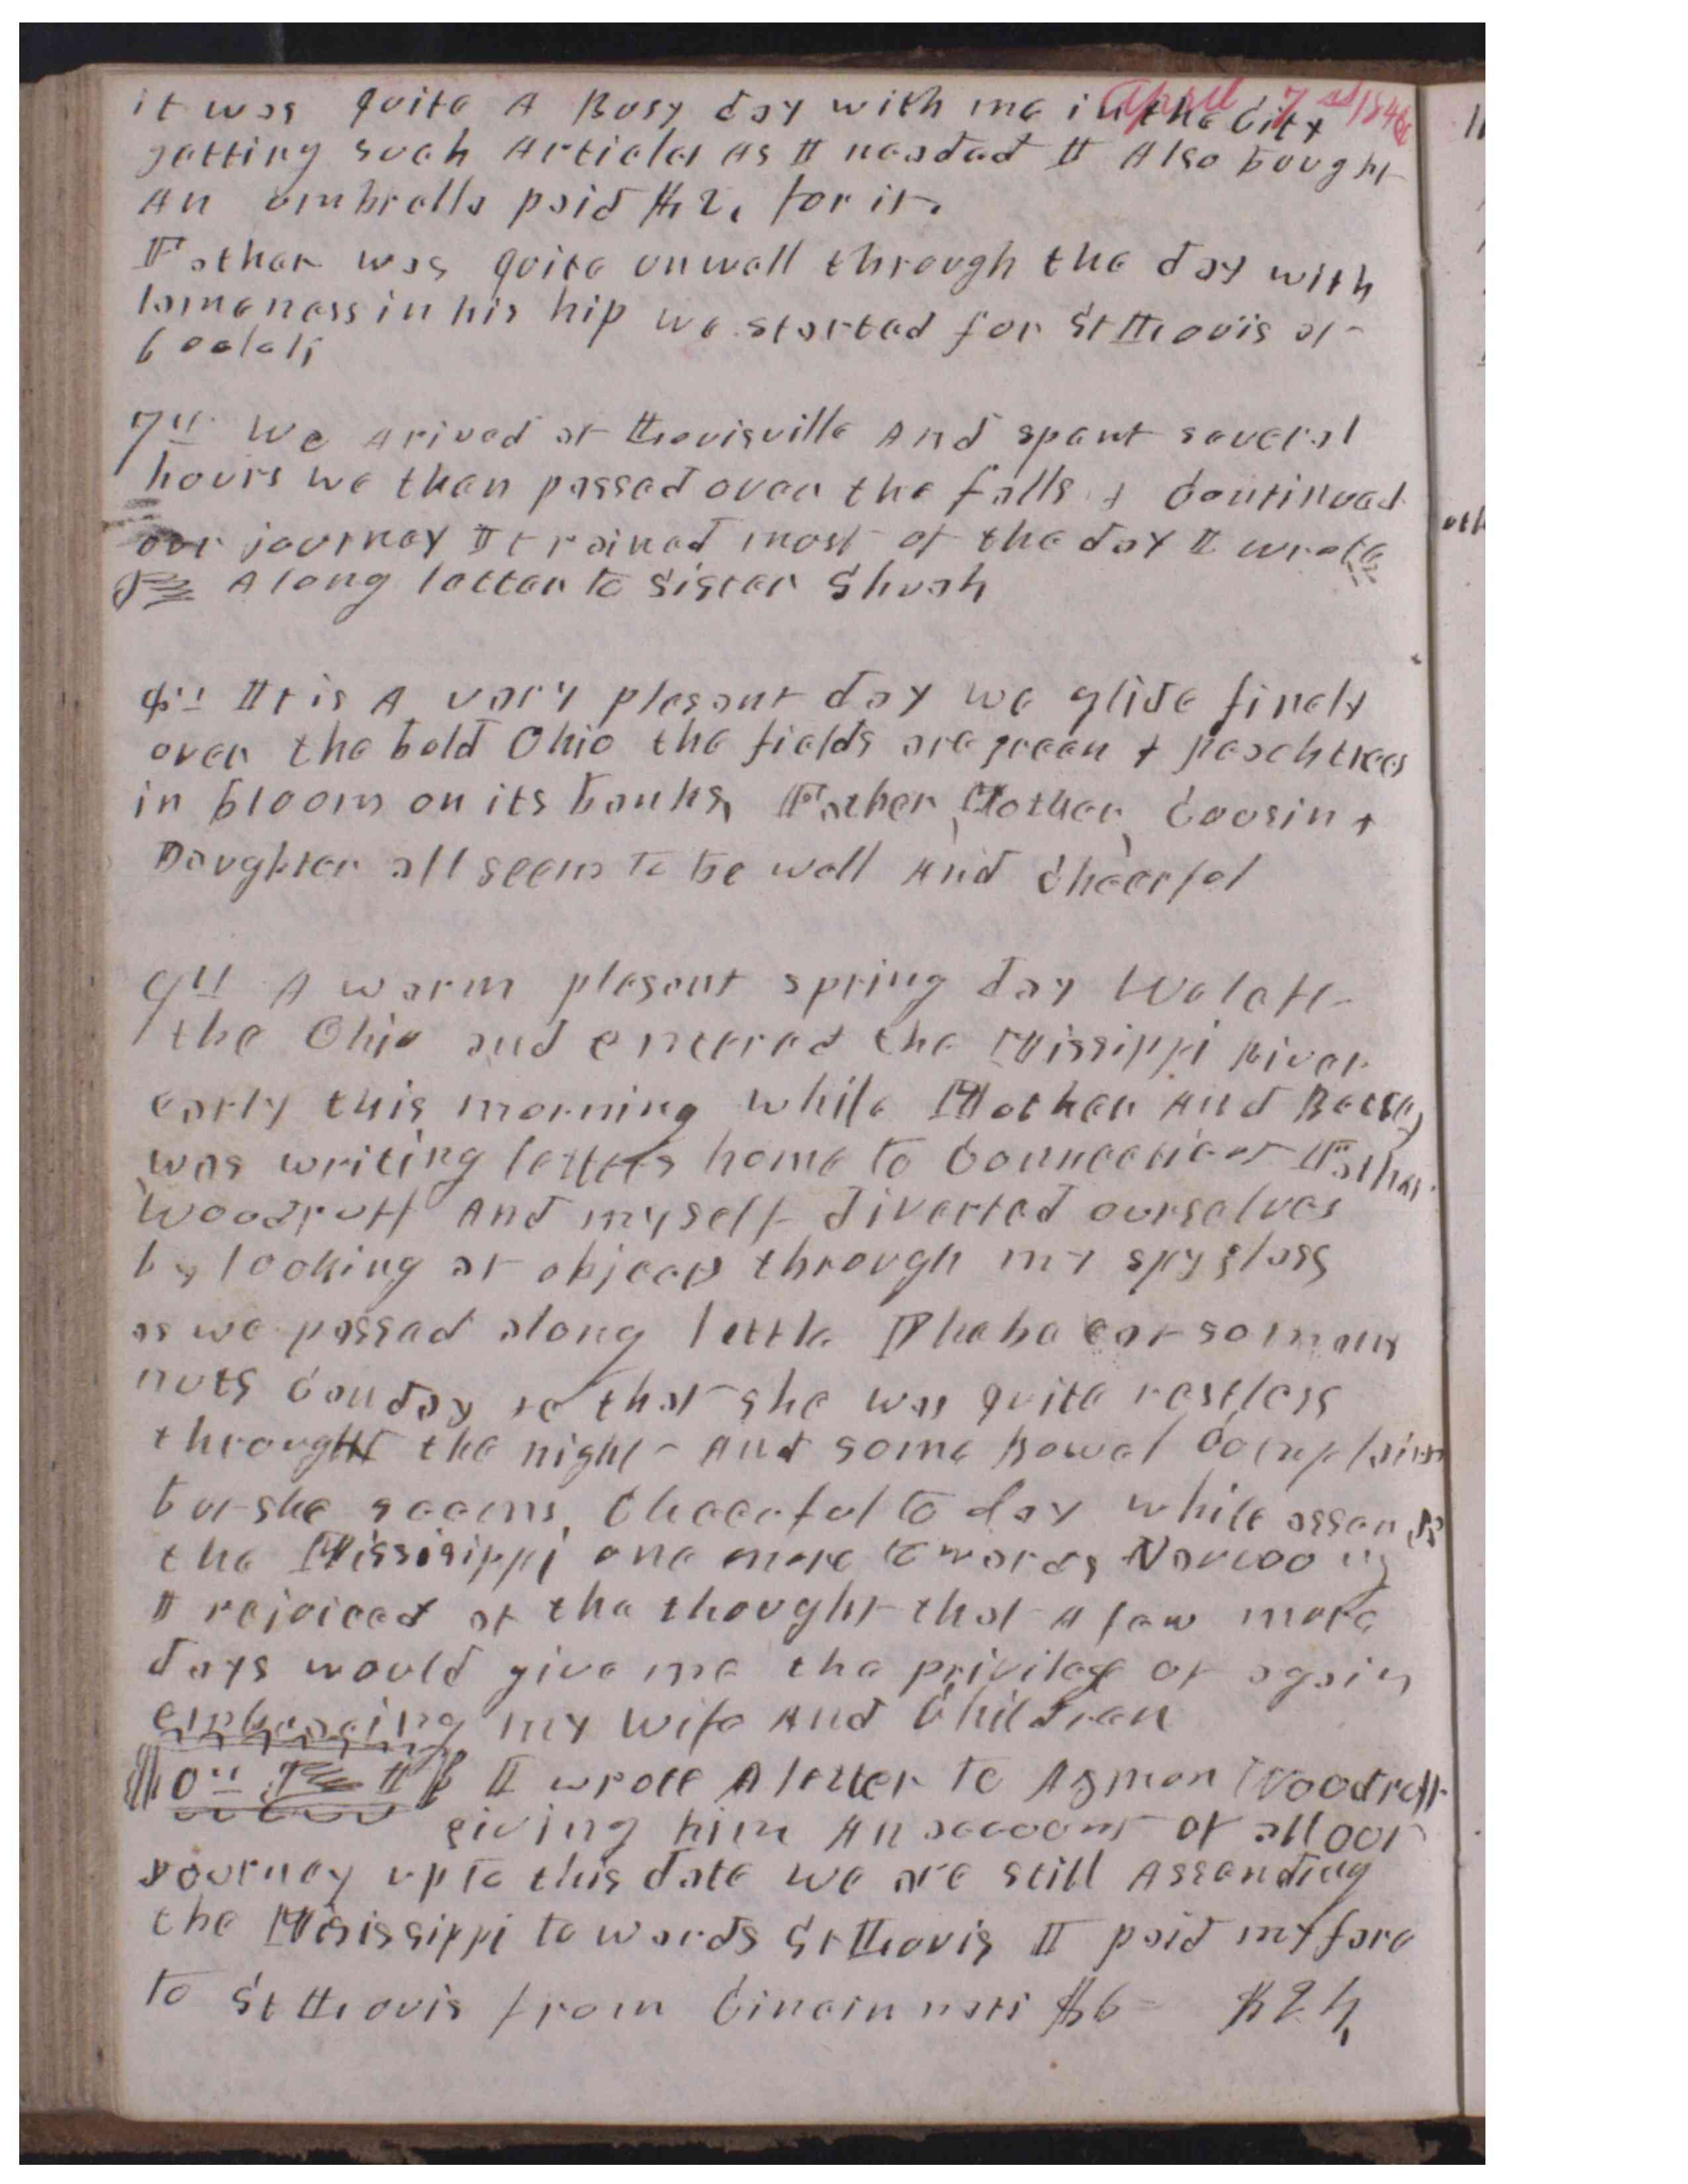 April 7th 1846
it was quite A Busy day with me in the City
getting such Articles as I needed I Also bought
An umbrella paid $2, for it.
Father was quite unwell through the day with
lameness in his hip we started for St Louis at
6 oclok
7th We arived at Louisville And spent several
hours we then passed over the falls & Continued
our journey It rained most of the day I wrote
A long letter to Sister Shuah
8th It is A very plesant day we glide finely
over the bold Ohio the fields are green & Peach trees
in bloom on its banks, Father, Mother, Cousin &
Daughter all seem to be well And Cheerful
9th A warm plesant spring day We left
the Ohio and entered the Missippi River
early this morning while Mother And Betsey
was writing letters home to Connecticut Father
Woodruff And myself diverted ourselves
by looking at objects through my spy glass
as we passed along little Phebe eat so many
nuts Canday &c that she was quite restless
through the night And some Bowel Complaint
but she seems Cheerful to day while assending
the Missisippi one more towards Nauvoo
I rejoiced at the thought that A few more
days would give me the privilege of again
embracing my wife And Children
10th I wrote A letter to Azmon Woodruff
giving him An account of all our
journey up to this date we are still Assending
the Mississippi towards St Louis I paid my fare
to St Louis from Cincinnati $6 - $24,